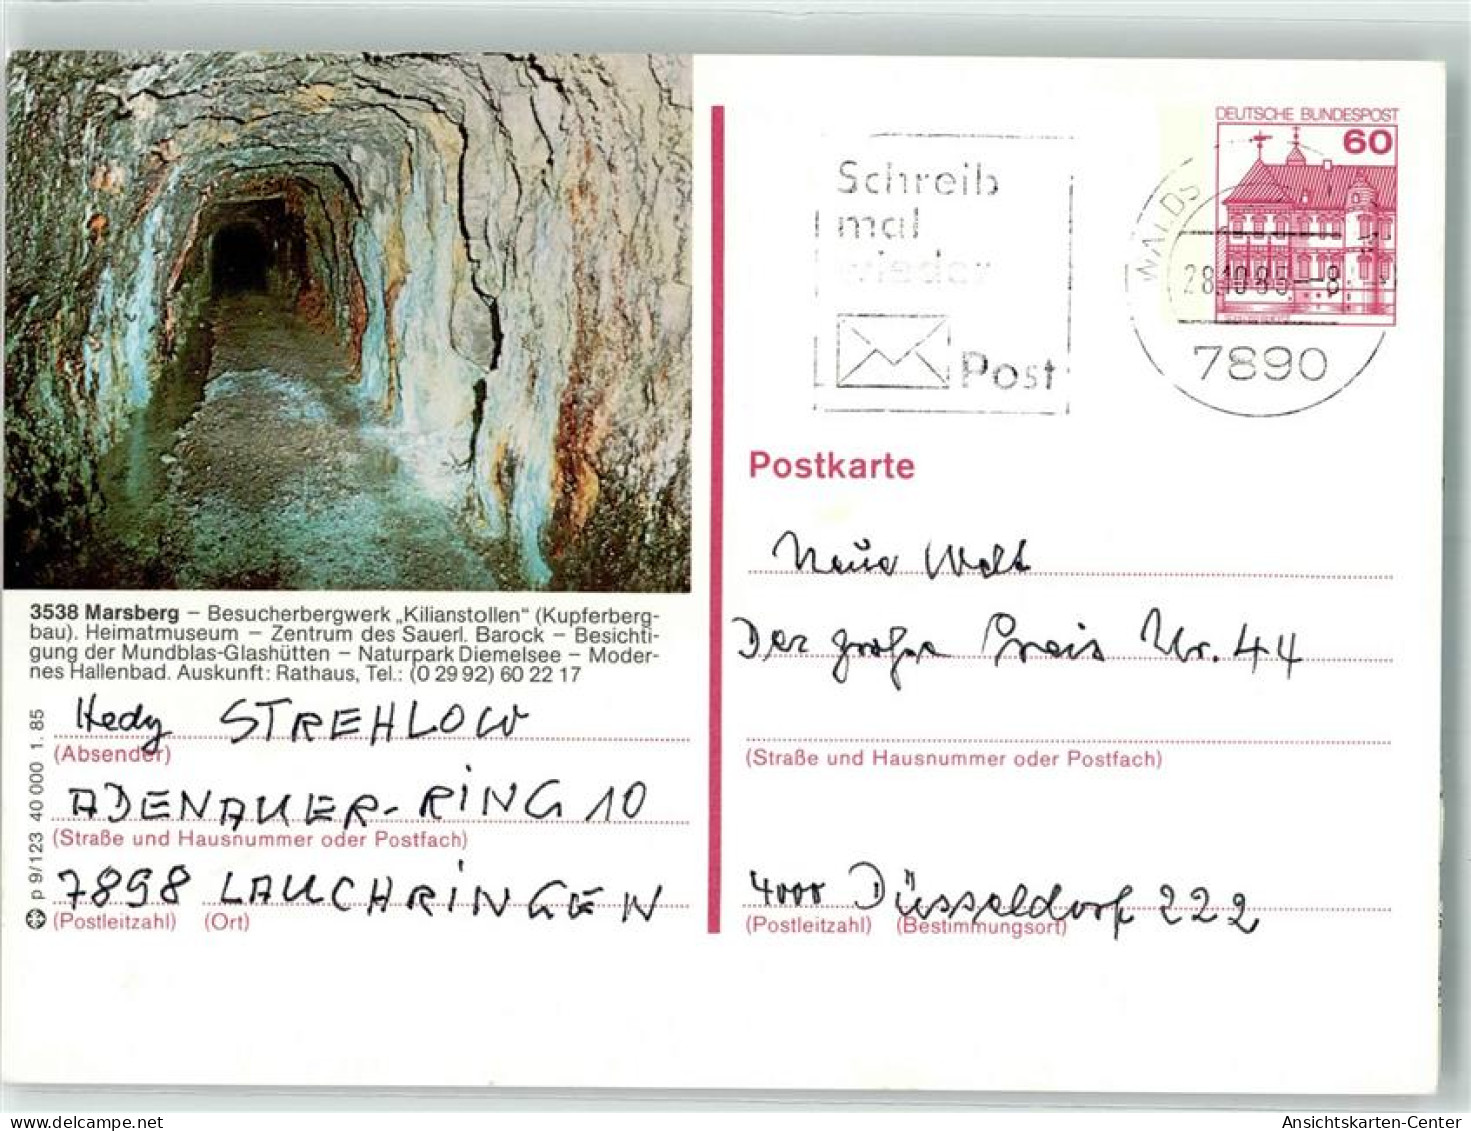 DEUTSCHE BUNDESPOST
60
Schreib
mal
wieder
Post
28.10.85-8
7890
Postkarte
Neue Welt
Der große Preis Nr. 44
(Straße und Hausnummer oder Postfach)
4000 Düsseldorf 222
(Postleitzahl) (Bestimmungsort)
3538 Marsberg – Besucherbergwerk „Kilianstollen“ (Kupferberg-
bau). Heimatmuseum – Zentrum des Sauerl. Barock – Besichti-
gung der Mundblas-Glashütten – Naturpark Diemelsee – Moder-
nes Hallenbad. Auskunft: Rathaus, Tel.: (0 29 92) 60 22 17
Hedy STREHLOW
(Absender)
ADENAUER-RING 10
(Straße und Hausnummer oder Postfach)
7898 LAUCHRINGEN
(Postleitzahl) (Ort)
p 9/123 40 000 1. 85
Ansichtskarten-Center